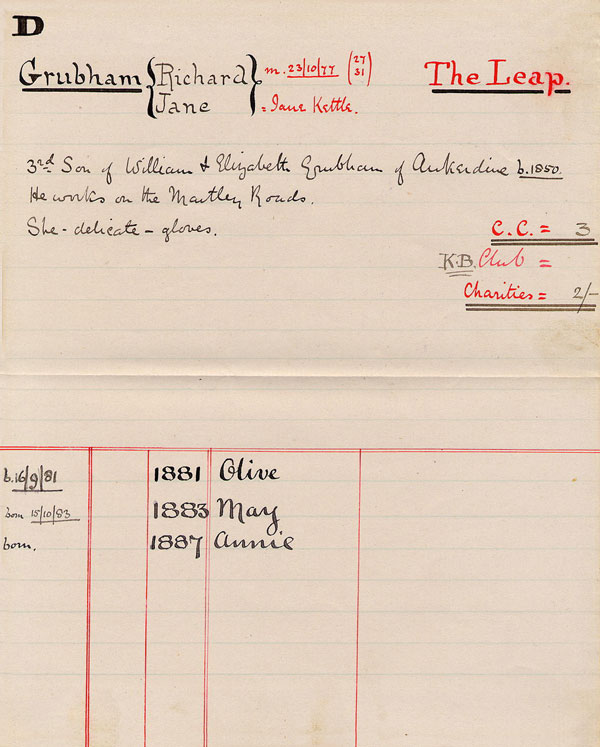 D
Grubham { Richard } m. 23/10/77 (27 The Leap.
{ Jane } = Jane Kettle. 31)
3rd Son of William & Elizabeth Grubham of Ankerdine b. 1850.
He works on the Martley Roads.
She - delicate - gloves.
C.C. = 3
K.B. Club =
Charities = 2/-
b. 16/9/81 1881 Olive
born 15/10/83 1883 May
born. 1887 Annie